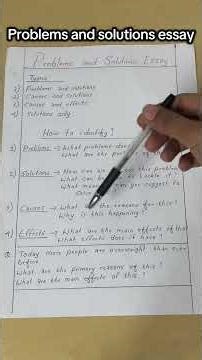 Problems and solutions essay
Problems and Solutions Essay
Types
1) Problems and solutions
2) Causes and solutions
3) Causes and effects
4) Solutions only
How to identify?
1) Problems → What problems does
What are the problems of
2) Solutions → How can we this problem
What can be tackle it?
What you suggest to
3) Causes → What the reasons for this?
Why is this happening?
4) Effects → What are the main effects of that
What effects does it have?
Today more people are overweight than ever
before
What are the primary reasons of this?
What are the main effects of this?